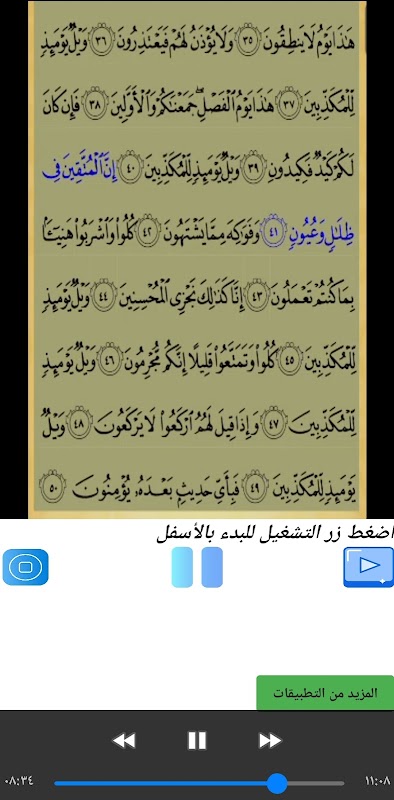 هَٰذَا يَوْمُ لَا يَنطِقُونَ ٣٥ وَلَا يُؤْذَنُ لَهُمْ فَيَعْتَذِرُونَ ٣٦ وَيْلٌ يَوْمَئِذٍ
لِّلْمُكَذِّبِينَ ٣٧ هَٰذَا يَوْمُ الْفَصْلِ ۖ جَمَعْنَاكُمْ وَالْأَوَّلِينَ ٣٨ فَإِن كَانَ
لَكُمْ كَيْدٌ فَكِيدُونِ ٣٩ وَيْلٌ يَوْمَئِذٍ لِّلْمُكَذِّبِينَ ٤٠ إِنَّ الْمُتَّقِينَ فِي
ظِلَالٍ وَعُيُونٍ ٤١ وَفَوَاكِهَ مِمَّا يَشْتَهُونَ ٤٢ كُلُوا وَاشْرَبُوا هَنِيئًا
بِمَا كُنتُمْ تَعْمَلُونَ ٤٣ إِنَّا كَذَٰلِكَ نَجْزِي الْمُحْسِنِينَ ٤٤ وَيْلٌ يَوْمَئِذٍ
لِّلْمُكَذِّبِينَ ٤٥ كُلُوا وَتَمَتَّعُوا قَلِيلًا إِنَّكُم مُّجْرِمُونَ ٤٦ وَيْلٌ يَوْمَئِذٍ
لِّلْمُكَذِّبِينَ ٤٧ وَإِذَا قِيلَ لَهُمُ ارْكَعُوا لَا يَرْكَعُونَ ٤٨ وَيْلٌ
يَوْمَئِذٍ لِّلْمُكَذِّبِينَ ٤٩ فَبِأَيِّ حَدِيثٍ بَعْدَهُ يُؤْمِنُونَ ٥٠
اضغط زر التشغيل للبدء بالأسفل
المزيد من التطبيقات
٠٨:٣٤
١١:٠٨